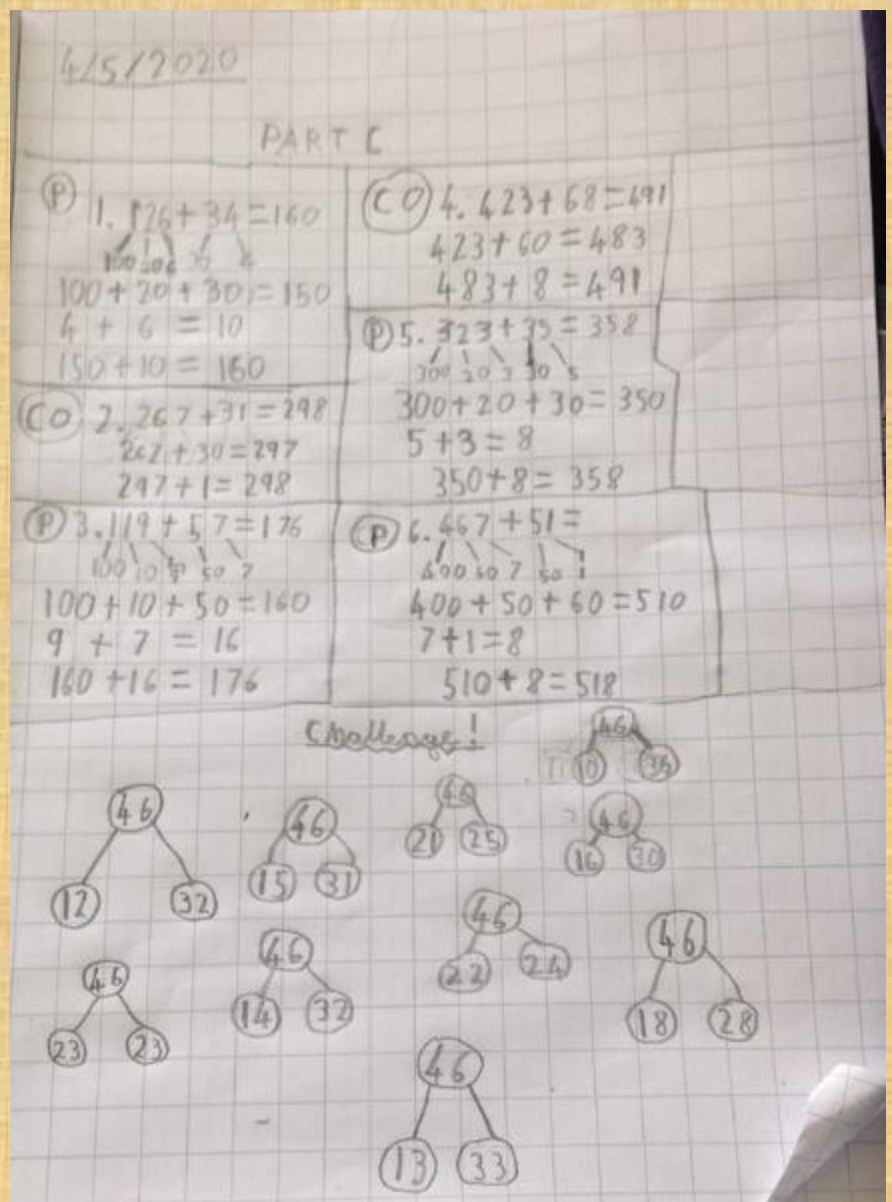 4/5/2020
PART C
(P) 1. 126 + 34 = 160
100 20 6 30 4
100 + 20 + 30 = 150
4 + 6 = 10
150 + 10 = 160
(CO) 2. 267 + 31 = 298
267 + 30 = 297
297 + 1 = 298
(P) 3. 119 + 57 = 176
100 10 9 50 7
100 + 10 + 50 = 160
9 + 7 = 16
160 + 16 = 176
(CO) 4. 423 + 68 = 491
423 + 60 = 483
483 + 8 = 491
(P) 5. 323 + 35 = 358
300 20 3 30 5
300 + 20 + 30 = 350
5 + 3 = 8
350 + 8 = 358
(P) 6. 467 + 51 =
400 60 7 50 1
400 + 50 + 60 = 510
7 + 1 = 8
510 + 8 = 518
Challenge!
46
10
46
12 32
46
15 31
46
21 25
46
16 30
46
23 23
46
14 32
46
22 24
46
18 28
46
13 33